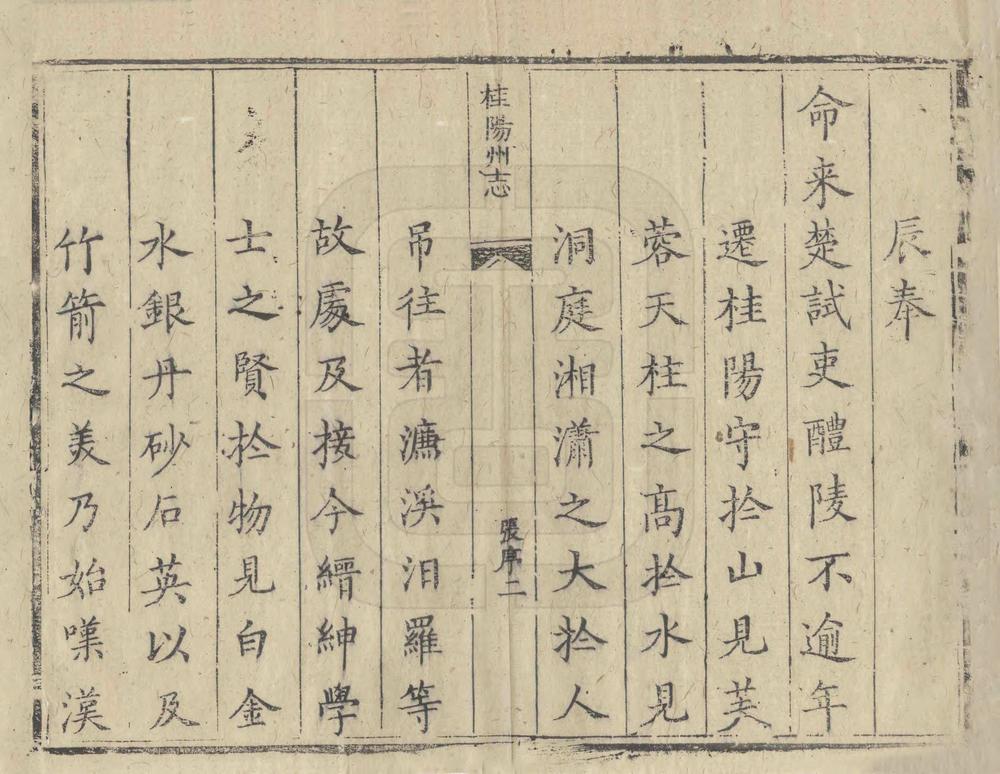 辰奉
命来楚試吏醴陵不逾年
遷桂陽守扵山見芙
蓉天柱之高扵水見
洞庭湘瀟之大扵人
桂陽州志
張序二
吊往者濂溪汨羅等
故處及接今縉紳學
士之賢扵物見白金
水銀丹砂石英以及
竹箭之美乃始嘆漢